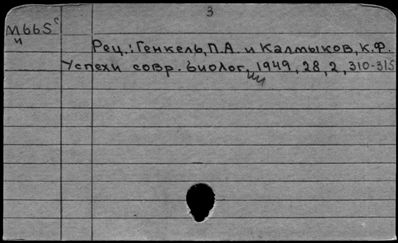 3
М665с
и
Рец.: Генкель, П.А. и Калмыков, К.Ф.
Успехи совр. биолог., 1949, 28, 2, 310-315